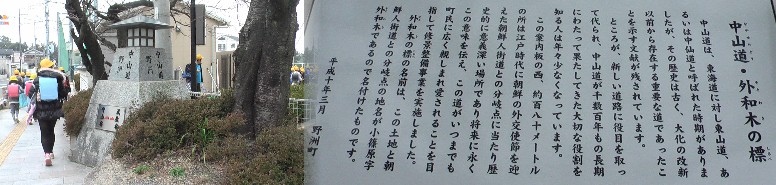 中山道・外和木の標
中山道は、東海道に対し東山道、あ
るいは中仙道と呼ばれた時期がありま
したが、その歴史は古く、大化の改新
以前から存在する重要な道であったこ
とを示す文献が残されています。
ところが、新しい道路に役目を取っ
て代られ、中山道が千数百年もの長期
にわたって果たしてきた大切な役割を
知る人は年々少なくなっています。
この案内板の西、約百八十メートル
の所は江戸時代に朝鮮の外交使節を迎
えた朝鮮人街道との分岐点に当たり歴
史的に意義深い場所であり将来に永く
この意味を伝え、この道がいつまでも
町民に広く親しまれ愛されることを目
指して修景整備事業を実施しました。
外和木の標の名前は、この土地と朝
鮮人街道との分岐点の地名が小篠原字
外和木であるので名付けたものです。
平成十年三月 野洲町
中山道